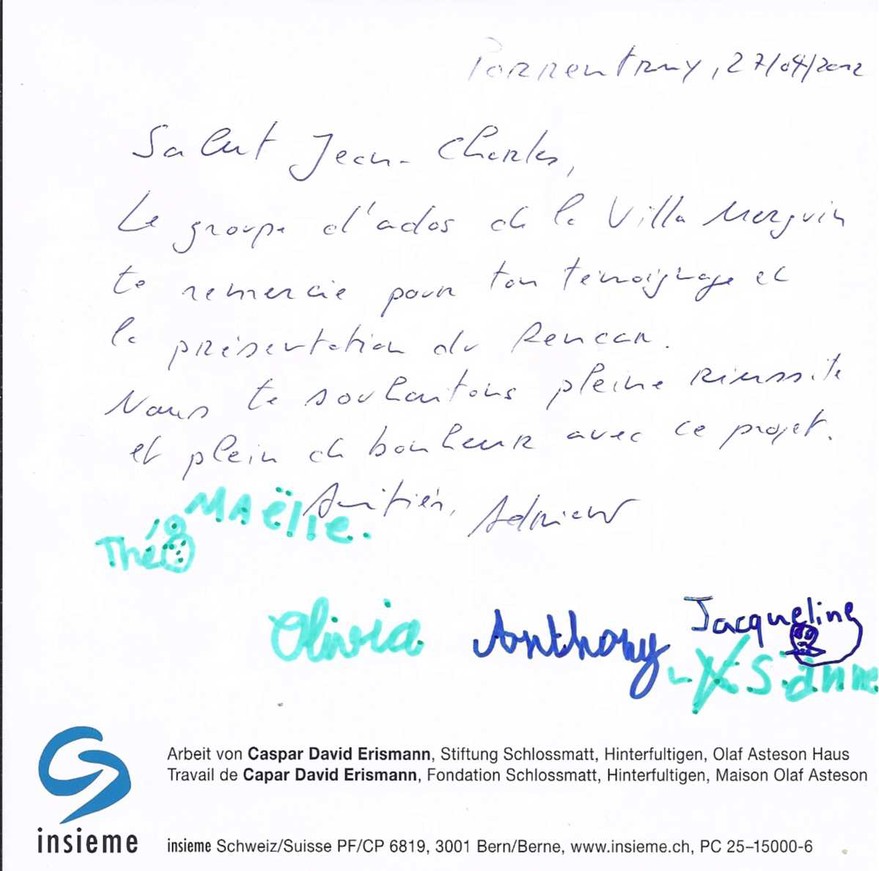 Porrentruy, 27/04/2012
Salut Jean-Charles,
Le groupe d'ados de la Villa Merguin
te remercie pour ton témoignage et
la présentation du Rencar.
Nous te souhaitons pleine réussite
et plein de bonheur avec ce projet.
Amitiés, Adrien
MAëlle.
Théo
Olivia Anthony Jacqueline
Arbeit von Caspar David Erismann, Stiftung Schlossmatt, Hinterfultigen, Olaf Asteson Haus
Travail de Capar David Erismann, Fondation Schlossmatt, Hinterfultigen, Maison Olaf Asteson
insieme
insieme Schweiz/Suisse PF/CP 6819, 3001 Bern/Berne, www.insieme.ch, PC 25–15000-6